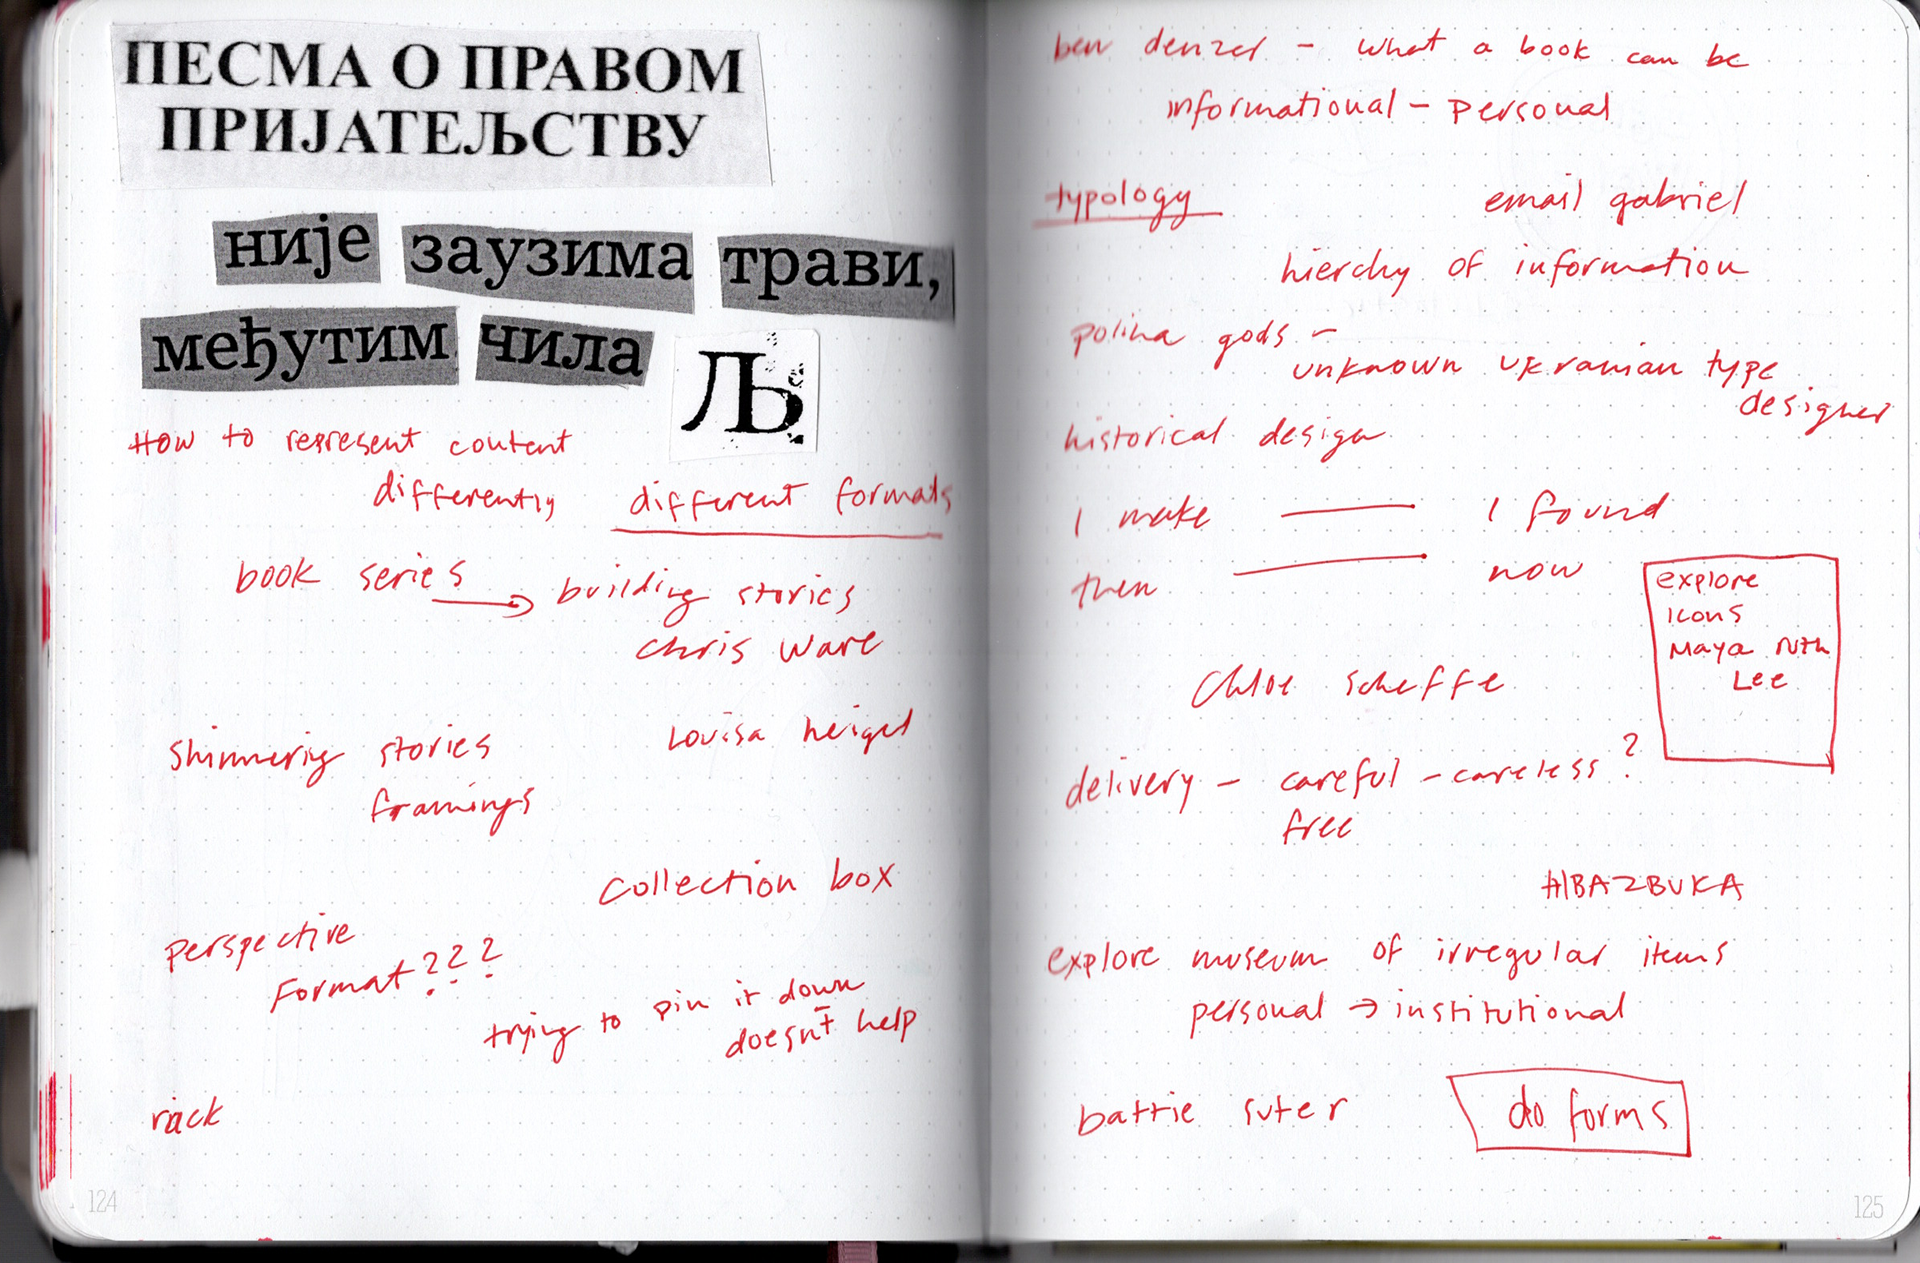 ПЕСМА О ПРАВОМ
ПРИЈАТЕЉСТВУ
није заузима трави,
међутим чила
Љ
How to represent content
differently
different formats
book series → building stories
chris ware
shimmering stories
framings
Louisa heigel
collection box
perspective
format???
trying to pin it down
doesn't help
rack
124
ben denzer - what a book can be
informational - personal
typology
email gabriel
hierchy of information
polina gods -
unknown ukranian type
designer
historical design
I make — I found
then — now
explore
icons
Maya ruth
Lee
Chloe scheffe
delivery - careful - careless?
free
AIBAZBUKA
explore museum of irregular items
personal → institutional
battie suter
do forms
125